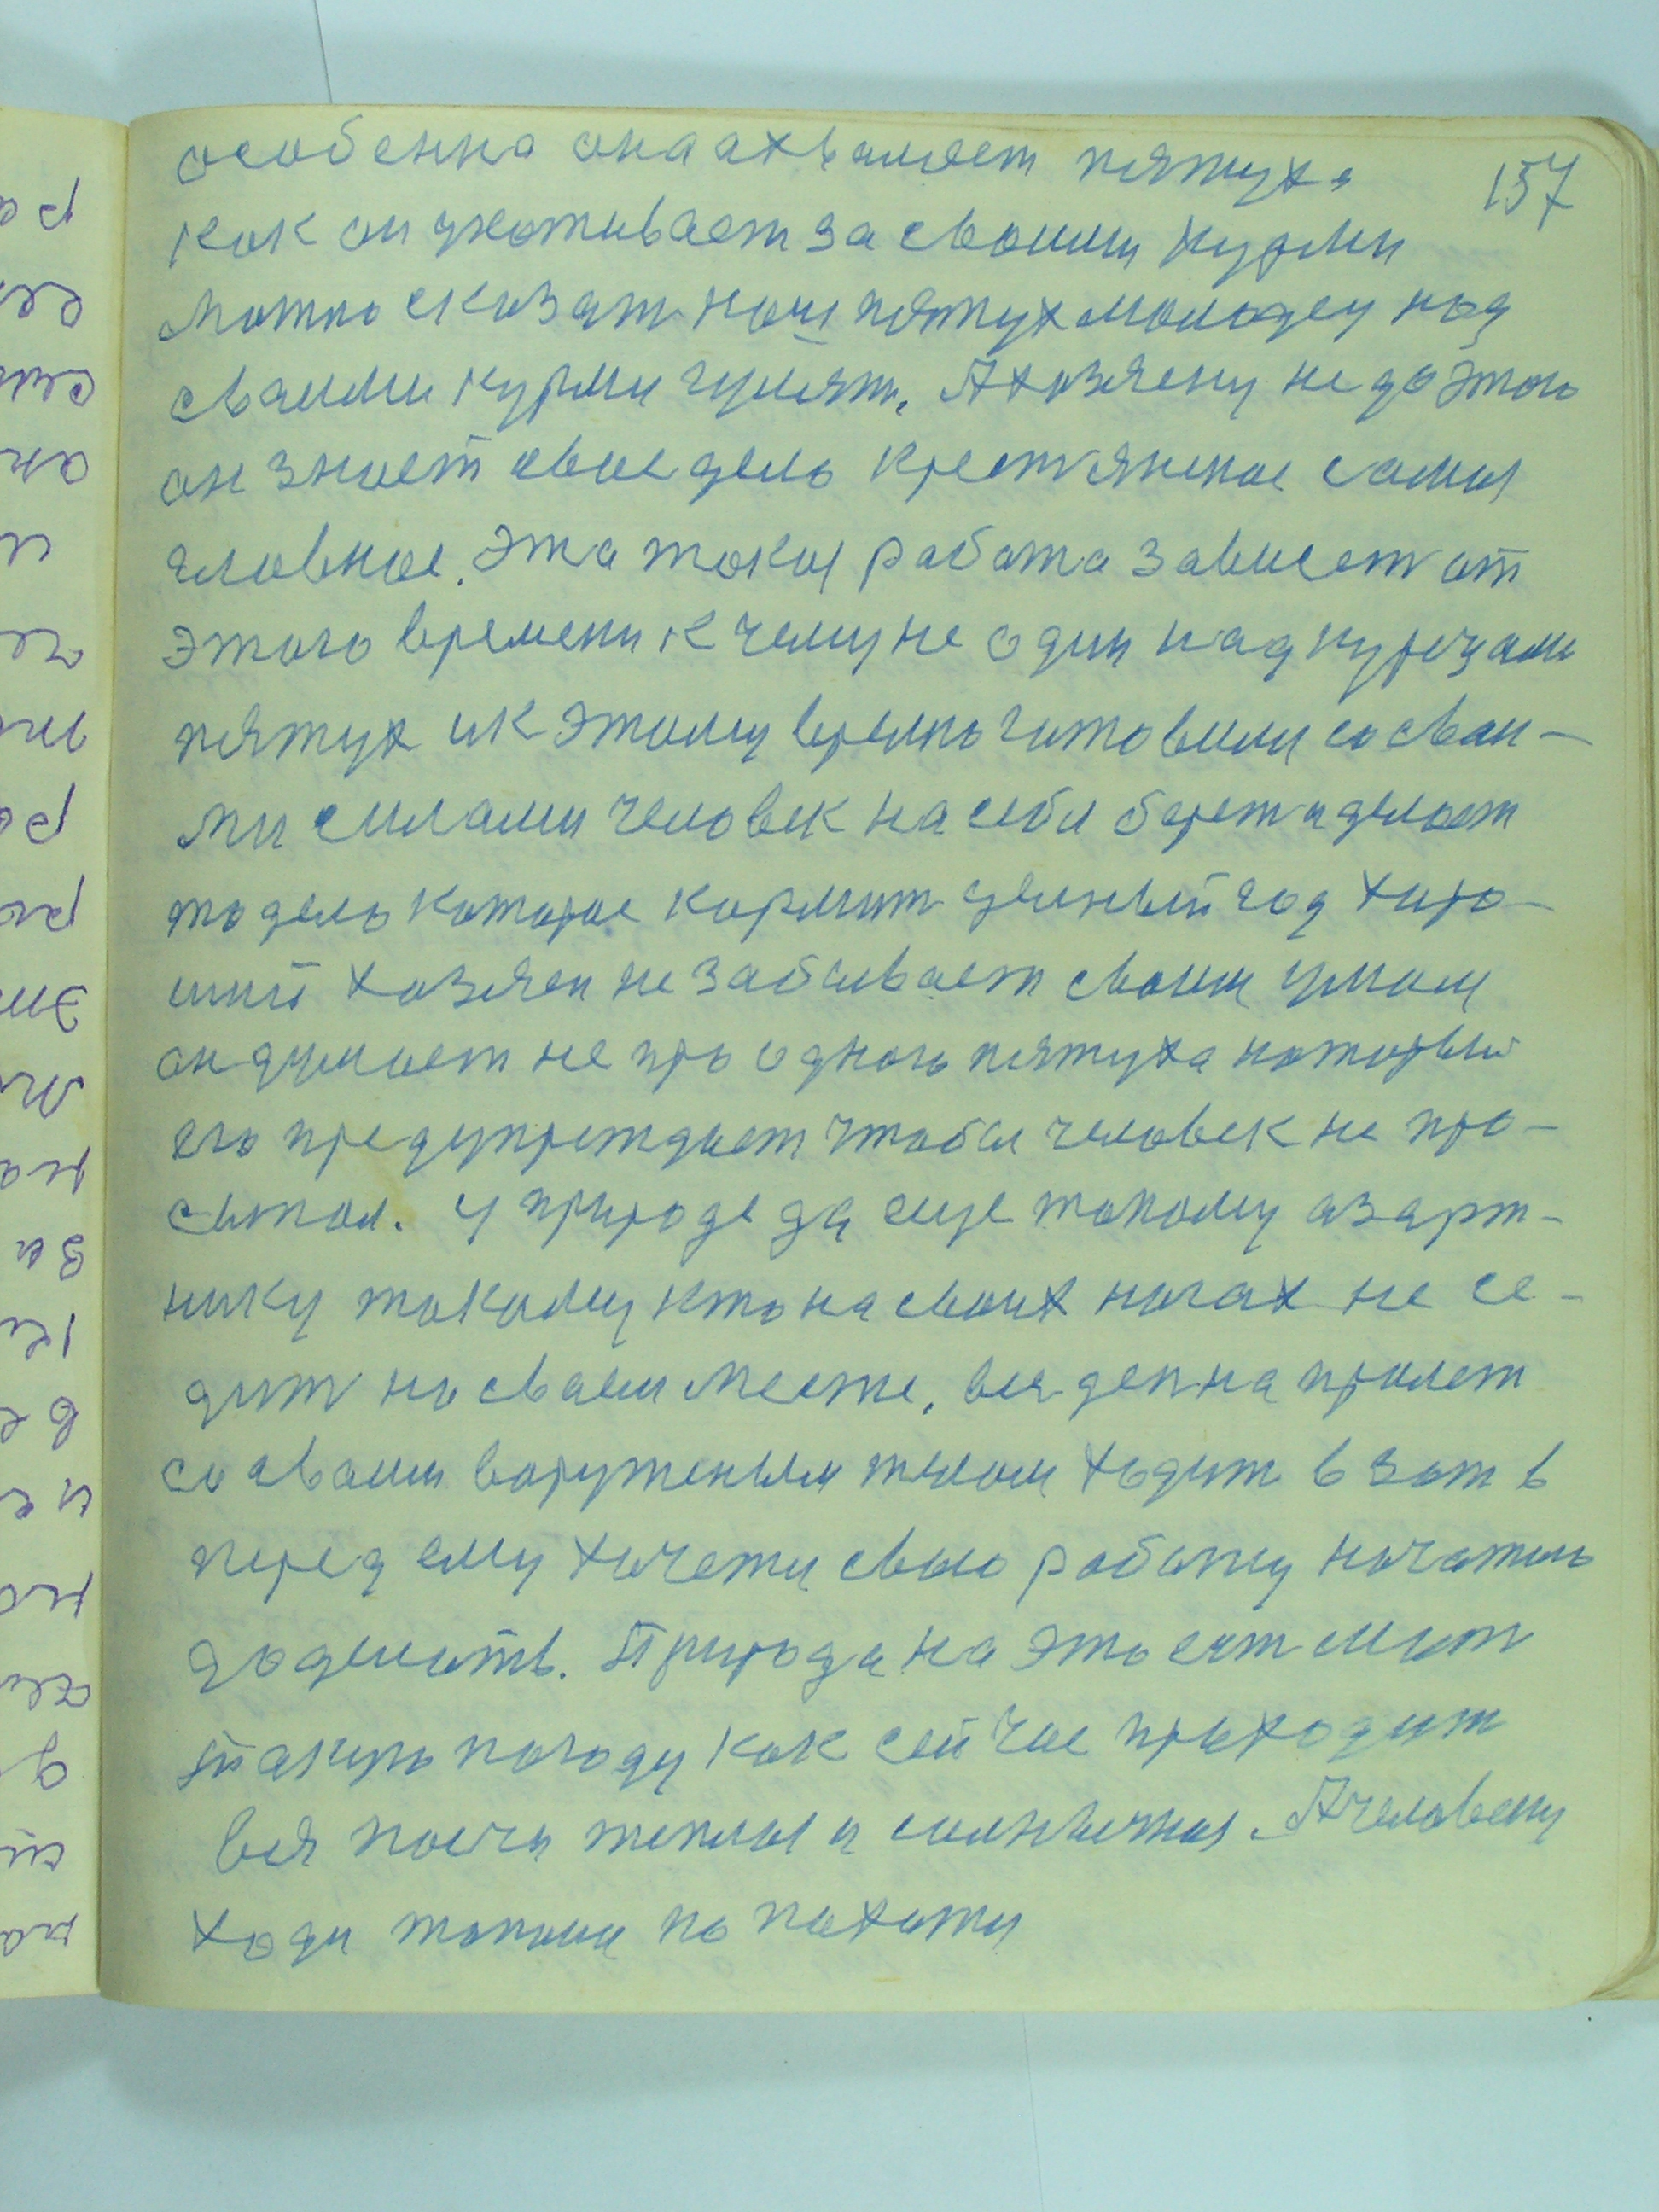 157
особенна она ахваляет пятуха
как он ухотивает за своими курми
мотно сказат наш пятух молодец над
сваими курми гулят. А хозяену не до этого
он знает свое дело крестянское самая
гловное. Эта токая работа зависет от
этого времени к чему не один над курецами
пятух и к этому времю готовили со сваи-
ми силами человек на себя берет и делает
то дело которое кормит целный год хоро-
ший хозяен не забывает своим умом
он думает не про одного пятуха который
его предупреждает чтобы человек не про-
сыпал. У природе да еще такому азарт-
нику такому кто на своих ногах не се-
дит на сваем месте. вся ден на пролет
со сваим воруженым телом ходит взат в
перед ему хочети свою работу начатию
доделать. Природа на это ест мист
такую погоду как сейчас приходит
вся почти теплая и солнычная. А человеку
ходи топчи по пахоти